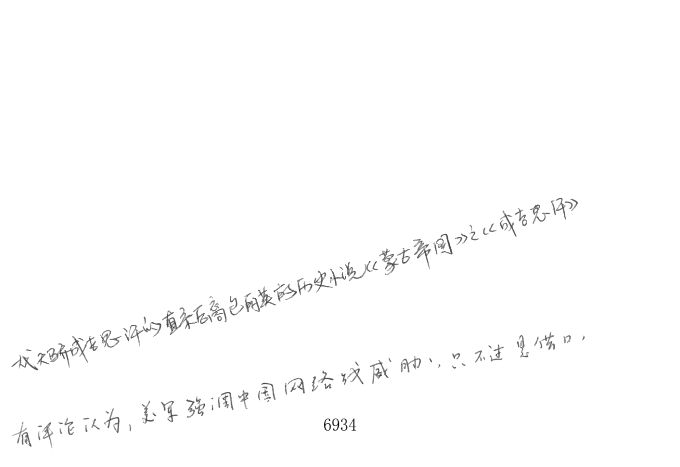 成天骄成吉思汗的直系后裔包丽英的历史小说《蒙古帝国》之《成吉思汗》
有评论认为,美军强调中国网络战威胁,只不过是借口,
6934